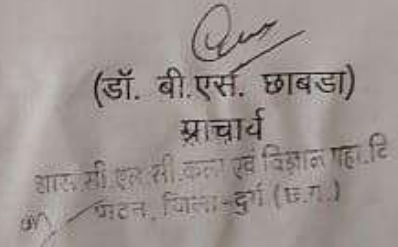 (डॉ. बी.एस. छाबडा)
प्राचार्य
शास. सी.एल.सी.कला एवं विज्ञान महा.वि
पाटन, जिला-दुर्ग (छ.ग.)